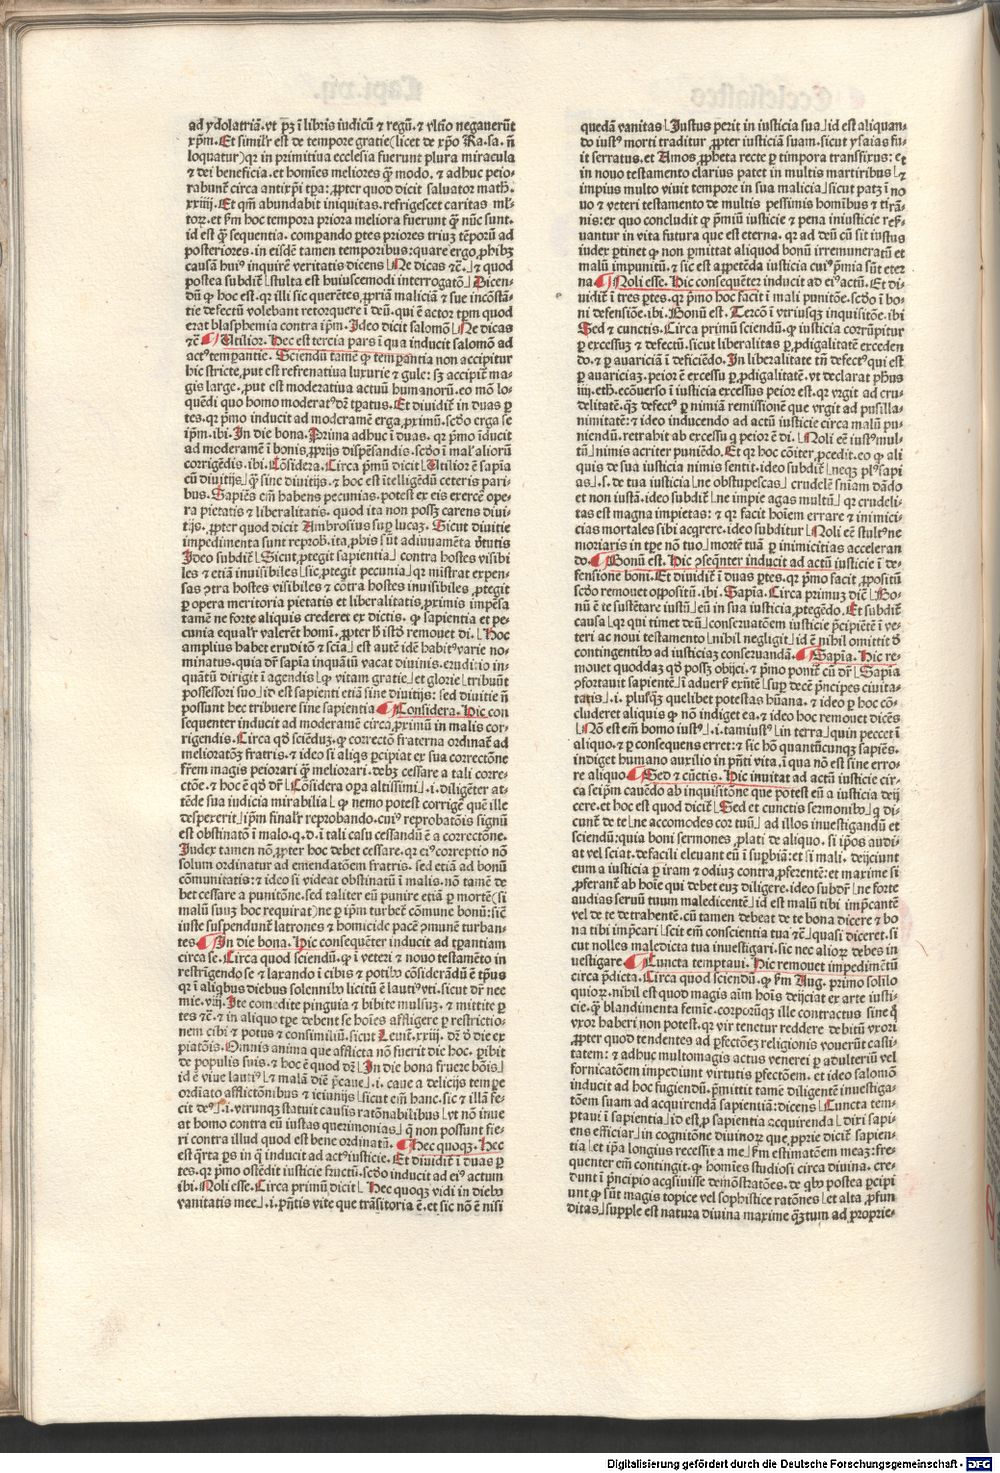 ad ydolatriā. vt pꝫ ī libris iudicū ⁊ regū. ⁊ vltīo negauerūt
xp̄m. Et simil'r est de tempore gratie (licet de xp̄o Ra. sa. n̄
loquatur) qr in primitiua ecclesia fuerunt plura miracula
⁊ dei beneficia. et homīes meliores qꝫ modo. ⁊ adhuc peio-
rabunt̄ circa antixp̄i tp̄a: ꝓpter quod dicit saluator math̄.
xxiiij. Et qm̄ abundabit iniquitas. refrigescet caritas ml'-
toꝝ. et ẜm hoc tempora priora meliora fuerunt qꝫ nūc sunt.
id est qꝫ sequentia. compando ꝑtes priores triuꝫ tēporū ad
posteriores. in eisdē tamen temporibus: quare ergo ꝓhibꝫ
causā huiꝰ inquirēe veritatis dicens Ne dicas ⁊c̄. ⁊ quod
postea subdit̄ stulta est huiuscemodi interrogatō Dicen-
dū ꝙ hoc est. qr illi sic querētes. ꝓpriā maliciā ⁊ sue incōstā-
tie defectū volebant retorquere ī deū. qui ē actor tp̄m quod
erat blasphemia contra ip̄m. Ideo dicit salomō Ne dicas
⁊c̄ Utilior. Hec est tercia pars ī qua inducit salomō ad
actꝰ temꝑantie. Sciendū tamē ꝙ temꝑantia non accipitur
hic stricte, put est refrenatiua luxurie ⁊ gule: sꝫ accipit̄ ma-
gis large, put est moderatiua actuū humanorū. eo mō lo-
quēdi quo homo moderatꝰ dr̄ tꝑatus. Et diuidit̄ in duas ꝑ
tes. qr pͥmo inducit ad moderamē erga ꝓximū. scd̄o erga se
ip̄m. ibi. In die bona. Prima adhuc ī duas. qr pͥmo īducit
ad moderamē ī bonis ꝓprijs dispēsandis. scd̄o ī mal' aliorū
corrigēdis. ibi. Cōsidera. Circa pͥmū dicit Utilior ē sapīa
cū diuitijs qꝫ sine diuitijs. ⁊ hoc est ītelligēdū ceteris pari-
bus. Sapiēs em̄ habens pecunias. potest ex eis exercē ope-
ra pietatis ⁊ liberalitatis. quod ita non possꝫ carens diui-
tijs. ꝓpter quod dicit Ambrosius suꝑ lucaꝫ. Sicut diuitie
impedimenta sunt reprob̄. ita ꝓbis sūt adiuuamēta v̄tutis
Ideo subdit̄ Sicut ꝓtegit sapientia contra hostes visibi
les ⁊ etiā inuisibiles sic ꝓtegit pecunia qr mīstrat expen-
sas ꝯtra hostes visibiles ⁊ cōtra hostes inuisibiles ꝓtegit
ꝑ opera meritoria pietatis et liberalitatis ꝓximis impēsa
tamē ne forte aliquis crederet ex dictis. ꝙ sapientia et pe-
cunia equal'r valerēt homī. ꝓpter h̄ istd̄ remouet di. Hoc
amplius habet eruditō ⁊ scīa est autē idē habitꝰ varie no-
minatus. quia dr̄ sapīa inquātū vacat diuinis. erudicio in-
quātū dirigit ī agendis ꝙ vitam gratie et glorie tribuūt
possessori suo id est sapienti etiā sine diuitijs: sed diuitie n̄
possunt hec tribuere sine sapientia Considera. Hic con
sequenter inducit ad moderamē circa ꝓximū in malis cor-
rigendis. Circa qd̄ sciēduꝫ. ꝙ correctō fraterna ordinat̄ ad
melioratōꝫ fratris. ⁊ ideo si aliqͥs ꝑcipiat ex sua correctōne
fr̄em magis peiorari qꝫ meliorari. debꝫ cessare a tali corre-
ctōe. ⁊ hoc ē qd̄ dr̄ Cōsidera oꝑa altissimi .i. diligēter at-
tēde sua iudicia mirabilia ꝙ nemo potest corrigē quē ille
despexerit ip̄m final'r reprobando. cuiꝰ reprobatōis signū
est obstinatō ī malo. q. d. ī tali casu cessandū ē a correctōne.
Iudex tamen nō ꝓpter hoc debet cessare. qr eiꝰ correptio nō
solum ordinatur ad emendatōem fratris. sed etiā ad bonū
cōmunitatis: ⁊ ideo si videat obstinatū ī malis. nō tamē de
bet cessare a punitōne. sed taliter eū punire etiā ꝑ mortē (si
malū suuꝫ hoc requirat) ne ꝑ ip̄m turbet̄ cōmune bonū: sic̄
iuste suspendunt̄ latrones ⁊ homicide pacē ꝯmunē turban-
tes In die bona. Hic consequēter inducit ad tꝑantiam
circa se. Circa quod sciendū. ꝙ ī veteri ⁊ nouo testamēto in
restrīgendo se ⁊ laxando ī cibis ⁊ potibꝰ cōsiderādū ē tp̄us
qr ī aliquibus diebus solennibꝰ licitū ē lautiꝰ vti. sicut dr̄ nee
mie. viij. Ite comedite pinguia ⁊ bibite mulsuꝫ. ⁊ mittite ꝑ
tes ⁊c̄. ⁊ in aliquo tp̄e debent se hoīes affligere ꝑ restrictio-
nem cibi ⁊ potus ⁊ consimiliū. sicut Leuit̄. xxiij. dr̄ d̄ die ex
piatōis. Omnis anima que afflicta nō fuerit die hoc. ꝑibit
de populis suis. ⁊ hoc ē quod dr̄ In die bona fruere bōis
id ē viue lautiꝰ ⁊ malā diē ꝑcaue .i. caue a delicijs tempe
ordīato afflictōnibus ⁊ ieiunijs sicut em̄ hanc. sic ⁊ illā fe-
cit deꝰ .i. vtrunqꝫ statuit causis ratōnabilibus vt nō inue
at homo contra eū iustas querimonias qͣ non possunt fie-
ri contra illud quod est bene ordinatū. Hec quoqꝫ. Hec
est qͣrta ꝑs in qͣ inducit ad actꝰ iusticie. Et diuidit̄ ī duas ꝑ
tes. qr pͥmo ostēdit iusticie fructū. scd̄o inducit ad eiꝰ actum
ibi. Noli esse. Circa primū dicit Hec quoqꝫ vidi in diebꝰ
vanitatis mee .i. pn̄tis vite que trāsitoria ē. et sic nō ē nisi
quedā vanitas Iustus perit in iusticia sua id est aliquan-
do iustꝰ morti traditur ꝓpter iusticiā suam. sicut ysaias fu-
it serratus. et Amos ꝓpheta recte ꝑ timpora transfixus: et
in nouo testamento clarius patet in multis martiribus ⁊
impius multo viuit tempore in sua malicia sicut patꝫ ī no
uo ⁊ veteri testamento de multis pessimis hominibus ⁊ tirā-
nis: ex quo concludit ꝙ pͥmiū iusticie ⁊ pena iniusticie reser-
uantur in vita futura que est eterna. qr ad deū cū sit iustus
iudex ꝑtinet ꝙ non ꝑmittat aliquod bonū irremuneratū et
malū impunitū. ⁊ sic est appetēda iusticia cuiꝰ pͥmia sūt eter
na Noli esse. Hic consequēter inducit ad eiꝰ actū. Et di-
uidit̄ ī tres ꝑtes. qr pͥmo hoc facit ī mali punitōe. scd̄o ī bo-
ni defensiōe. ibi. Bonū est. Tercō ī vtriusqꝫ inquisitōe. ibi
Sed ⁊ cunctis. Circa primū sciendū. ꝙ iusticia corrūpitur
ꝑ excessuꝫ ⁊ defectū. sicut liberalitas ꝑ ꝓdigalitatē exceden
do. ⁊ ꝑ auariciā ī deficiēdo. In liberalitate tn̄ defectꝰ qui est
ꝑ auariciaꝫ. peior ē excessu ꝑ ꝓdigalitatē. vt declarat ph̄us
iiij. eth̄. ecōuerso ī iusticia excessus peior est. qr vrgit ad cru-
delitatē. qꝫ defectꝰ ꝑ nimiā remissionē que vrgit ad pusilla-
nimitatē: ⁊ ideo inducendo ad actū iusticie circa malū pu-
niendū. retrahit ab excessu qͥ peior ē di. Noli eē iustꝰ mul-
tū nimis acriter puniēdo. Et qr hoc cōiter ꝓcedit. eo ꝙ ali
quis de sua iusticia nimis sentit. ideo subdit̄ neqꝫ plꝰ sapi
as .s. de tua iusticia ne obstupescas crudelē sn̄iam dādo
et non iustā. ideo subdit̄ ne impie agas multū qr crudeli-
tas est magna impietas: ⁊ qr facit hoīem errare ⁊ inimici-
cias mortales sibi acqrere. ideo subditur Noli eē stultꝰ ne
moriaris in tp̄e nō tuo mortē tuā ꝑ inimicitias acceleran
do. Bonū est. Hic ꝯseqn̄ter inducit ad actū iusticie ī de-
fensione boni. Et diuidit̄ ī duas ꝑtes. qr pͥmo facit ꝓpositū
scd̄o remouet oppositū. ibi. Sapīa. Circa primuꝫ dic̄ Bo-
nū ē te sustētare iustū eū in sua iusticia ꝓtegēdo. Et subdit̄
causa qr qui timet deū conseruatōem iusticie ꝑcipiētē ī ve-
teri ac nouo testamento nihil negligit id ē nihil omittit d̄
contingentibꝰ ad iusticiaꝫ conseruandā. Sapīa. Hic re-
mouet quoddaꝫ qd̄ possꝫ obijci. ⁊ pͥmo ponit̄ cū dr̄ Sapīa
ꝯfortauit sapientē ī aduersis exn̄tē suꝑ decē pͥncipes ciuita-
tatis .i. plusqꝫ quelibet potestas hūana. ⁊ ideo ꝑ hoc cō-
cluderet aliquis ꝙ nō indiget ea. ⁊ ideo hoc remouet dicēs
Nō est em̄ homo iustꝰ .i. tamiustꝰ in terra quin peccet ī
aliquo. ⁊ ꝑ consequens erret: ⁊ sic hō quantūcunqꝫ sapiēs.
indiget humano auxilio in pn̄ti vita. ī qua nō est sine erro-
re aliquo Sed ⁊ cūctis. Hic inuitat ad actū iusticie cir-
ca seip̄m cauēdo ab inquisitōne que potest eū a iusticia deij
cere. et hoc est quod dicit̄ Sed et cunctis sermonibꝰ qͥ di-
cunt̄ de te ne accomodes cor tuū ad illos inuestigandū et
sciendū: quia boni sermones ꝓlati de aliquo. si ip̄os audi-
at vel sciat. defacili eleuant eū ī suꝑbiā: et si mali. deijciunt
eum a iusticia ꝑ iram ⁊ odiuꝫ contra ꝓferentē: et maxime si
ꝓferant̄ ab hoīe qui debet euꝫ diligere. ideo subdr̄ ne forte
audias seruū tuum maledicentē id est malū tibi impͥcantē
vel de te detrahentē. cū tamen debeat de te bona dicere ⁊ bo
na tibi impͥcari scit em̄ conscientia tua ⁊c̄ quasi diceret. si
cut nolles maledicta tua inuestigari. sic nec alioꝝ debes in
uestigare. Cuncta temptaui. Hic remouet impedimētū
circa p̄dicta. Circa quod sciendū ꝙ ẜm Aug. primo solilo
quioꝝ. nihil est quod magis aīm hoīs deijciat ex arte iusti-
cie. qꝫ blandimenta femīe. corporūqꝫ ille contractus sine qͦ
vxor haberi non potest. qr vir tenetur reddere debitū vxori
ꝓpter quod tendentes ad ꝑfectōeꝫ religionis vouerūt casti-
tatem: ⁊ adhuc multomagis actus venerei ꝑ adulteriū vel
fornicatōem impediunt virtutis ꝑfectōem. et ideo salomō
inducit ad hoc fugiendū. pͥmittit tamē diligentē inuestiga-
tōem suam ad acquirendā sapientiā: dicens Cuncta tem-
ptaui ī sapientia id est ꝓ sapientia acquirenda dixi sapi-
ens efficiar in cognitōne diuinoꝝ que ꝓprie dicit̄ sapien-
tia et ip̄a longius recessit a me ẜm estimatōem meaꝫ: fre-
quenter em̄ contingit. ꝙ homīes studiosi circa diuina. cre-
dunt ī pͥncipio acqsiuisse demōstratōes. de qbꝰ postea ꝑcipi
unt. ꝙ sūt magis topice vel sophistice ratōnes et alta ꝓfun
ditas supple est natura diuina maxime qꝫtum ad ꝓprie-
Digitalisierung gefördert durch die Deutsche Forschungsgemeinschaft - DFG